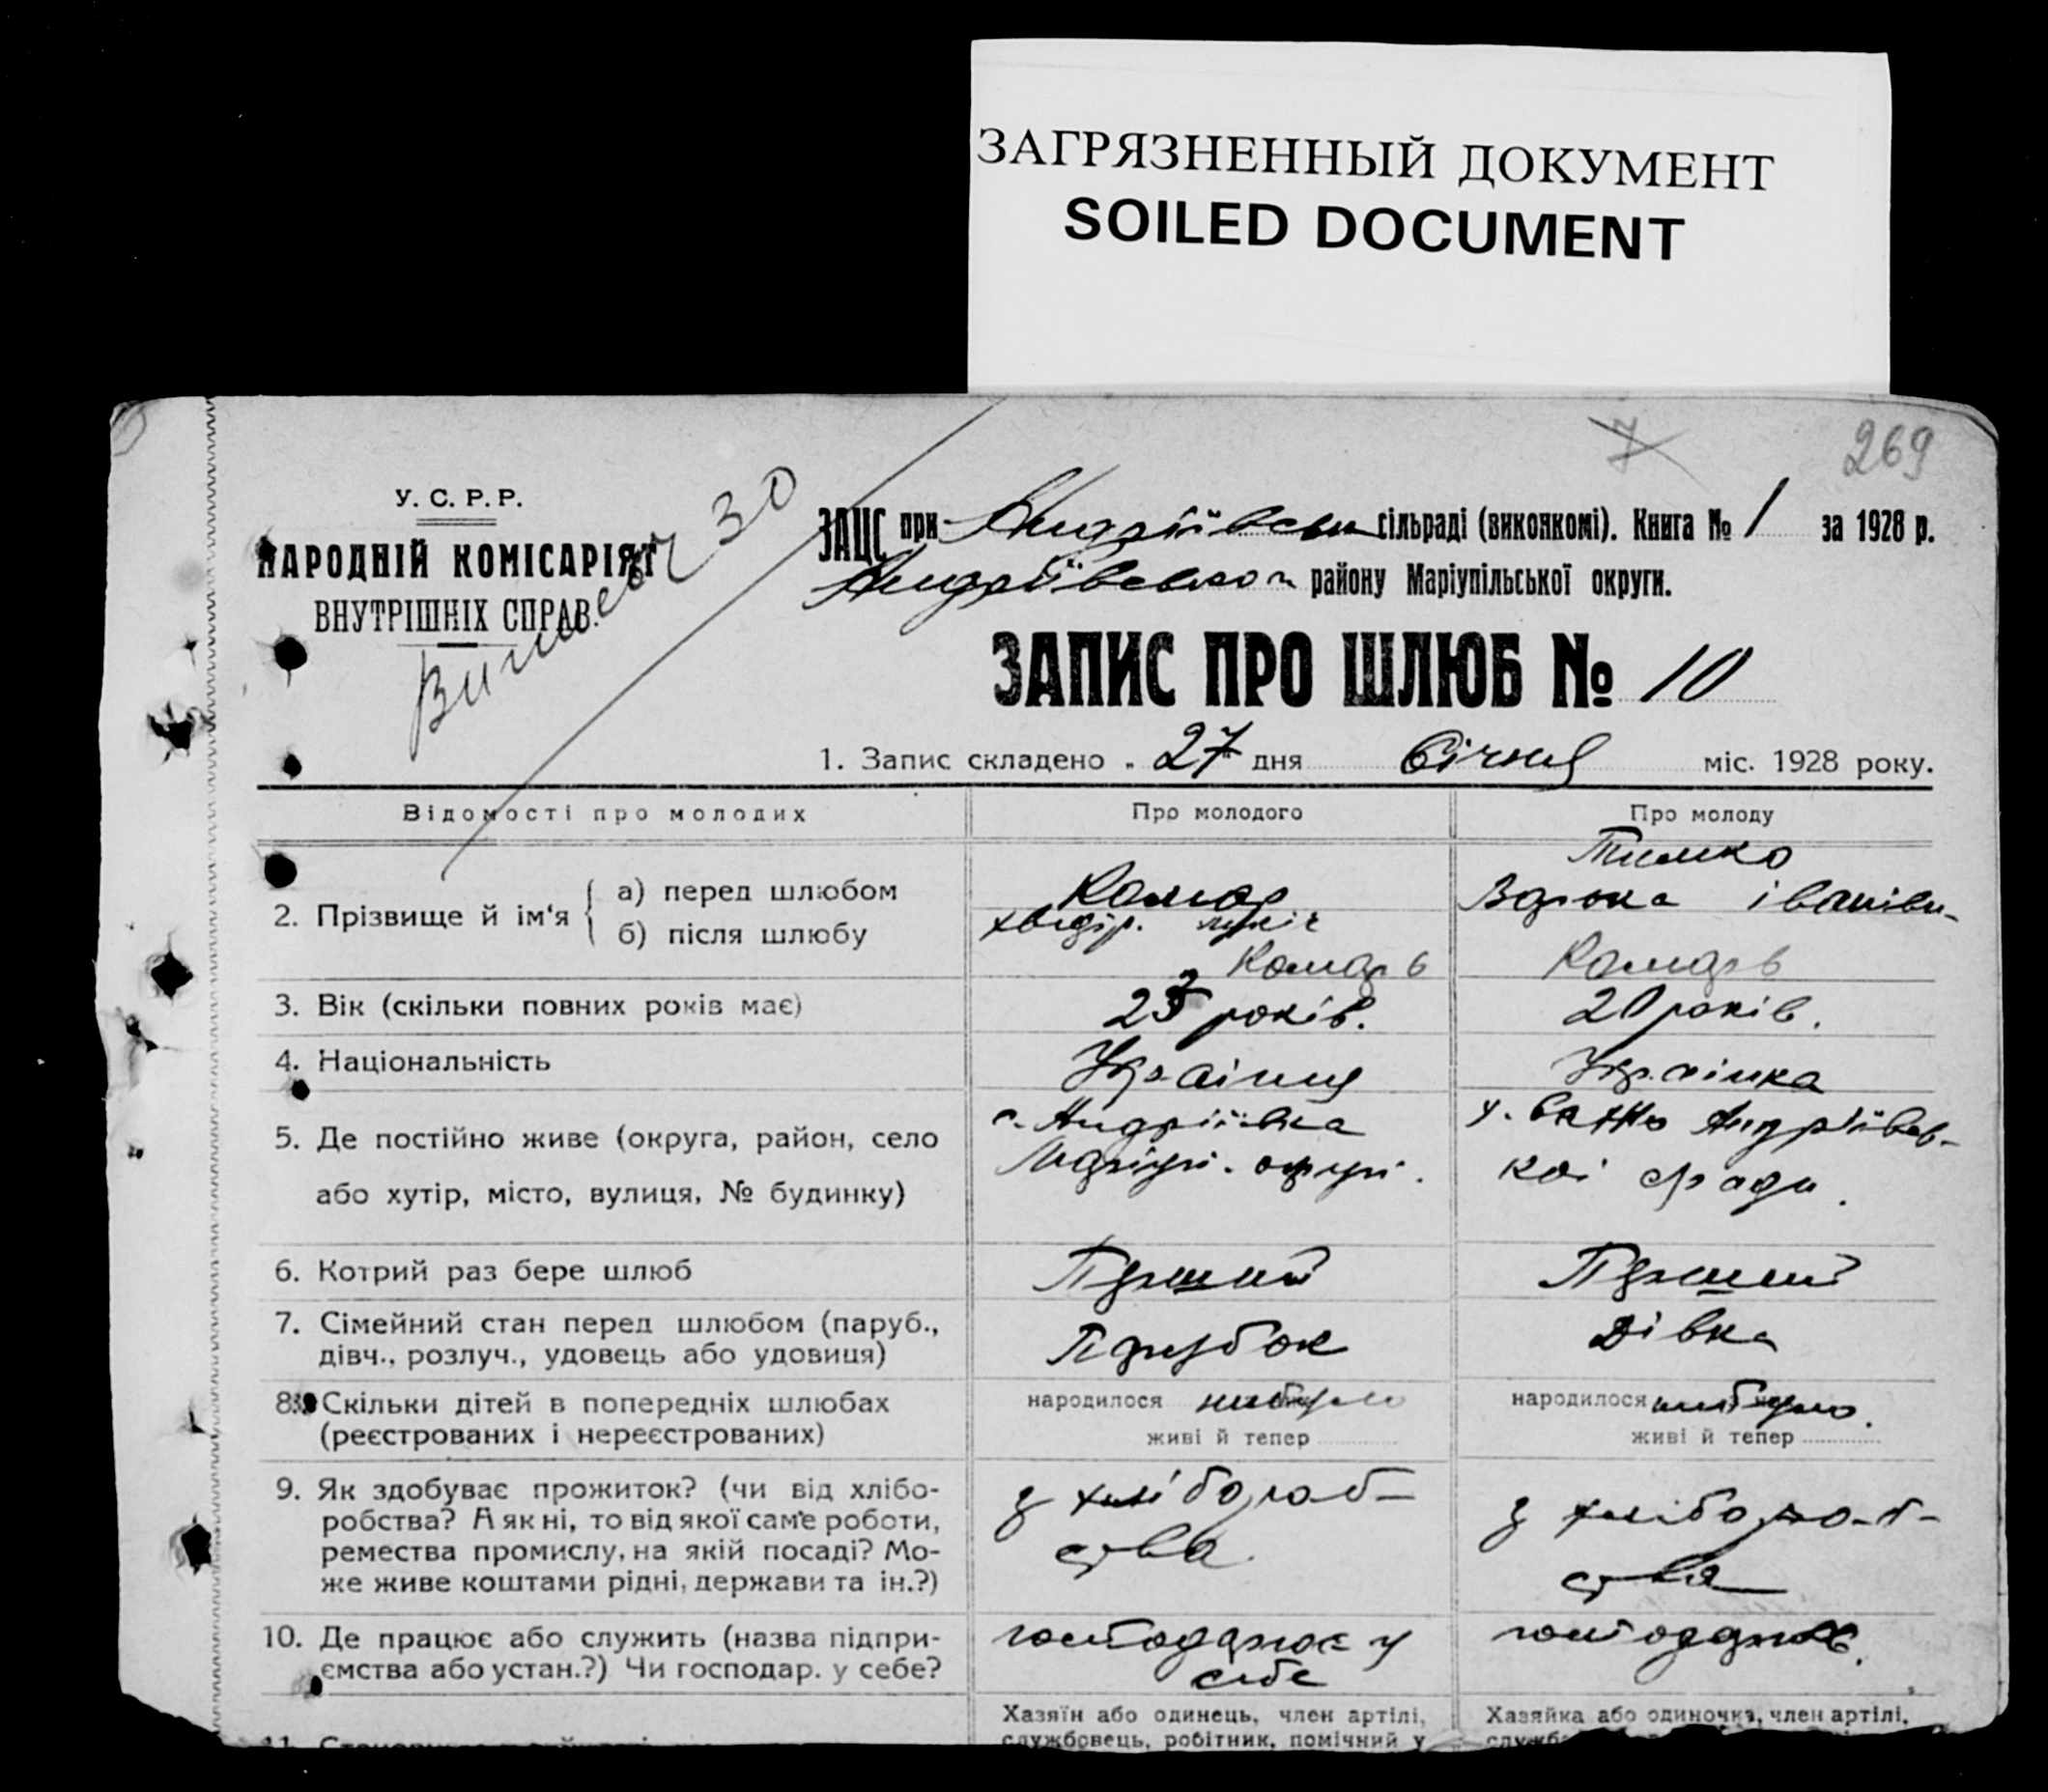 ЗАГРЯЗНЕННЫЙ ДОКУМЕНТ
SOILED DOCUMENT
7
269
У. С. Р. Р.
НАРОДНІЙ КОМІСАРІЯТ
ВНУТРІШНІХ СПРАВ.
30
ЗАЦС при Андріївськ сільраді (виконкомі). Книга № 1 за 1928 р.
Андріївського району Маріупільської округи.
ЗАПИС ПРО ШЛЮБ № 10
1. Запис складено „ 27 дня Січня міс. 1928 року.
Відомості про молодих
Про молодого
Про молоду
2. Прізвище й ім'я { а) перед шлюбом
б) після шлюбу
Комар
Комарь
Тимко
іванівн-
Комарь
3. Вік (скільки повних років має)
років.
20 років.
4. Національність
Українця
Українка
5. Де постійно живе (округа, район, село
або хутір, місто, вулиця, № будинку)
с. Андріївка
Маріуп. округ.
х. Андріївсь-
кої с/ради.
6. Котрий раз бере шлюб
Перший
Перший
7. Сімейний стан перед шлюбом (паруб.,
дівч., розлуч., удовець або удовиця)
Парубок
Дівка
8. Скільки дітей в попередніх шлюбах
(реєстрованих і нереєстрованих)
народилося небуло
живі й тепер
народилося небуло.
живі й тепер
9. Як здобуває прожиток? (чи від хлібо-
робства? А як ні, то від якої саме роботи,
ремества промислу, на якій посаді? Мо-
же живе коштами рідні, держави та ін.?)
з хлібороб-
ства
з хлібороб-
ства
10. Де працює або служить (назва підпри-
ємства або устан.?) Чи господар. у себе?
господарює у
себе
господарює.
Хазяїн або одинець, член артілі,
службовець, робітник, помічний у
Хазяйка або одиночка, член артілі,